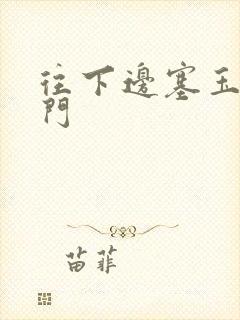 往下邊塞玉
門
苗菲